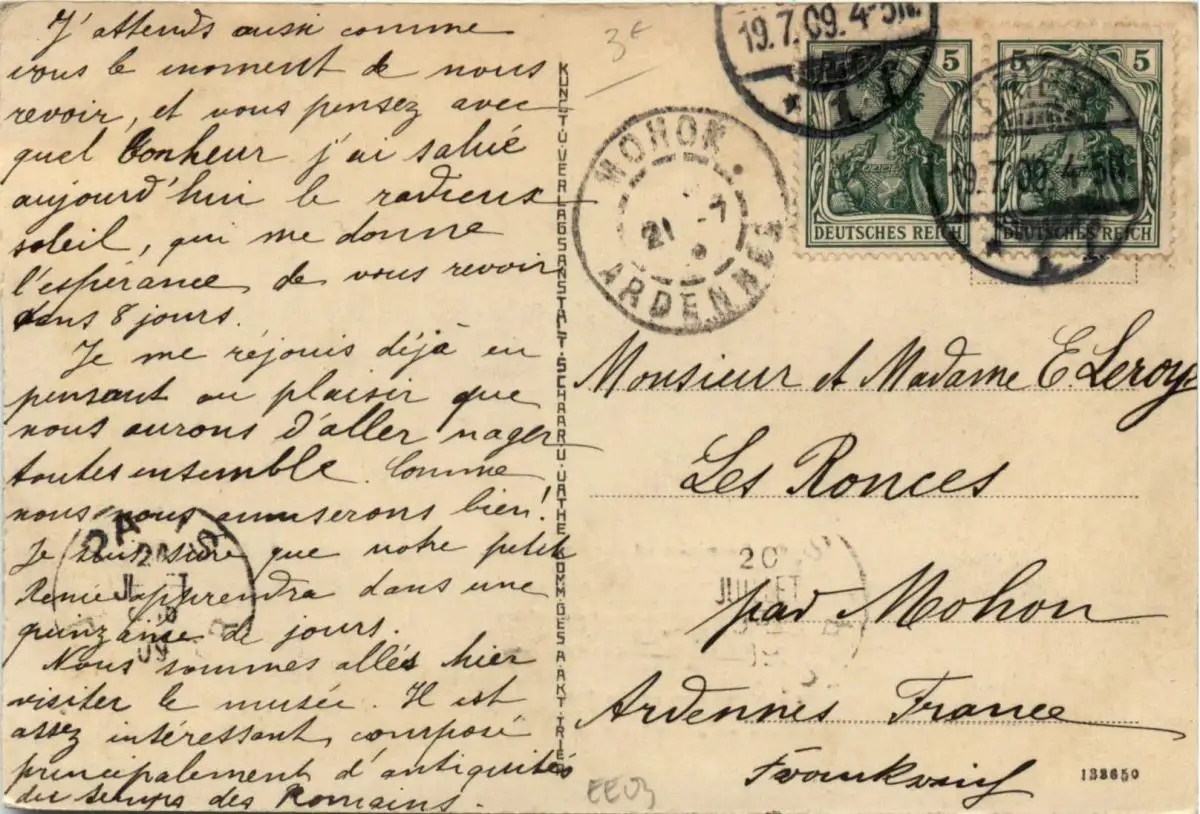 J'attends aussi comme
vous le moment de nous
revoir, et vous pensez avec
quel bonheur j'ai salué
aujourd'hui le radieux
soleil, qui me donne
l'espérance de vous revoir
dans 8 jours.
Je me réjouis déjà en
pensant au plaisir que
nous aurons d'aller nager
toutes ensemble. Comme
nous nous amuserons bien!
Je suis sûre que notre petit
Renée apprendra dans une
quinzaine de jours.
Nous sommes allés hier
visiter le musée. Il est
assez intéressant, composé
principalement d'antiquités
du temps des Romains.
KUNST- U. VERLAGSANSTALT SCHAAR U. DATHE KOMM. GES. A. AKT. TRIER
3€
19.7.09. 4-5N.
* 1 r
5
DEUTSCHES REICH
5 5
DEUTSCHES REICH
19.7.09. 4-5N.
* 1 r
MOHON
21 -7
ARDENNES
Monsieur et Madame E. Leroy
Les Ronces
par Mohon
Ardennes France
Frankreich
20
JUILLET
PARIS
133650
EE03